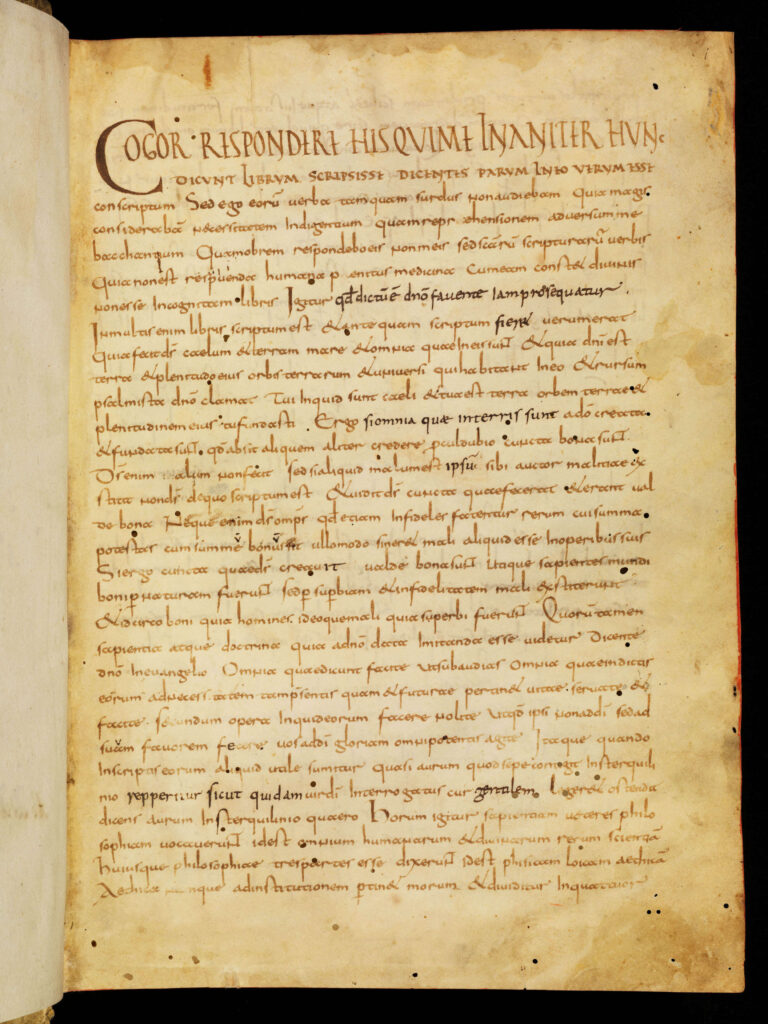 COGOR · RESPONDERE HIS QUI ME INANITER HUNC
DICUNT LIBRUM SCRIPSISSE DICENTES PARUM IN EO UERUM ESSE
conscriptum Sed ego eorū verba tamquam surdus non audiebam Quia magis
considerabā necessitatem Indigentium quam repr ehensionem adversum me
bacchantium Quamobrem respondebo eis non meis sed scārū scripturarū verbis
Quia non est respuenda humana p enitus medicina Cum eam constet divinis
non esse Incognitam libris Igitur qđ dictū ē dnō favente Iam prosequatur .
In multis enim libris scriptum est & antequam scriptum fier& verum erat
Quia fecit dš caelum & terram mare & omnia quae In eis sunt & quia dnī est
terra & plenitudo eius orbis terrarum & universi qui habitant In eo & rursum
psalmista dnō clamat Tui Inquid sunt caeli & tua est terra orbem terrae &
plenitudinem eius tu fundasti . Ergo si omnia quae in terris sunt a dō creata
& fundata sunt . qđ absit aliquem aliter credere . procul dubio cuncta bona sunt
Dš enim malum non fecit sed si aliquid malum est ipsū sibi auctor malitiae ex
stitit non dš de quo scriptum est & uidit dš cuncta quae fecerat & erant ual
de bona Neque enim dš omps qđ etiam Infideles fatentur rerum cui summa
potestas cum summe bonus sit ullo modo siner& mali aliquid esse In operibus suis
Si ergo cuncta quae dš creauit ualde bona sunt utique sapientes mundi
boni p naturam fuerunt sed p supbiam & infidelitatem mali extiterunt
& idcirco boni quia homines . ideoque mali quia superbi fuerunt Quorū tamen
sapientia atque doctrina quia a dnō data Imitanda esse videtur Dicente
dnō In euangelio Omnia quae dicunt facite ut subaudias omnia quae indicat
eorum ad necessitatem tam psentis quam & futurae pertin& uitae : seruate &
facite . secundum opera Inquid eorum facere nolite utq ipsi non ad dī sed ad
suam favorem fecere uos ad dī gloriam omnipotentis agite Itaque quando
In scriptis eorum aliquid utile sumitur quasi aurum quod sepe contigit In sterquili
nio repperitur sicut quidam uir dī Interrogatus cur gentilem leger& ostendit
dicens aurum In sterquilinio quaero Horum igitur sapientiam ueteres philo
sophiam uocauerunt id est omnium humanarum & divinarum rerum scientiā
Huiusque philosophiae tres partes esse dixerunt id est phisicam loicam aethicā
Aethica namque ad institutionem ptin& morum & dividitur In quattuor